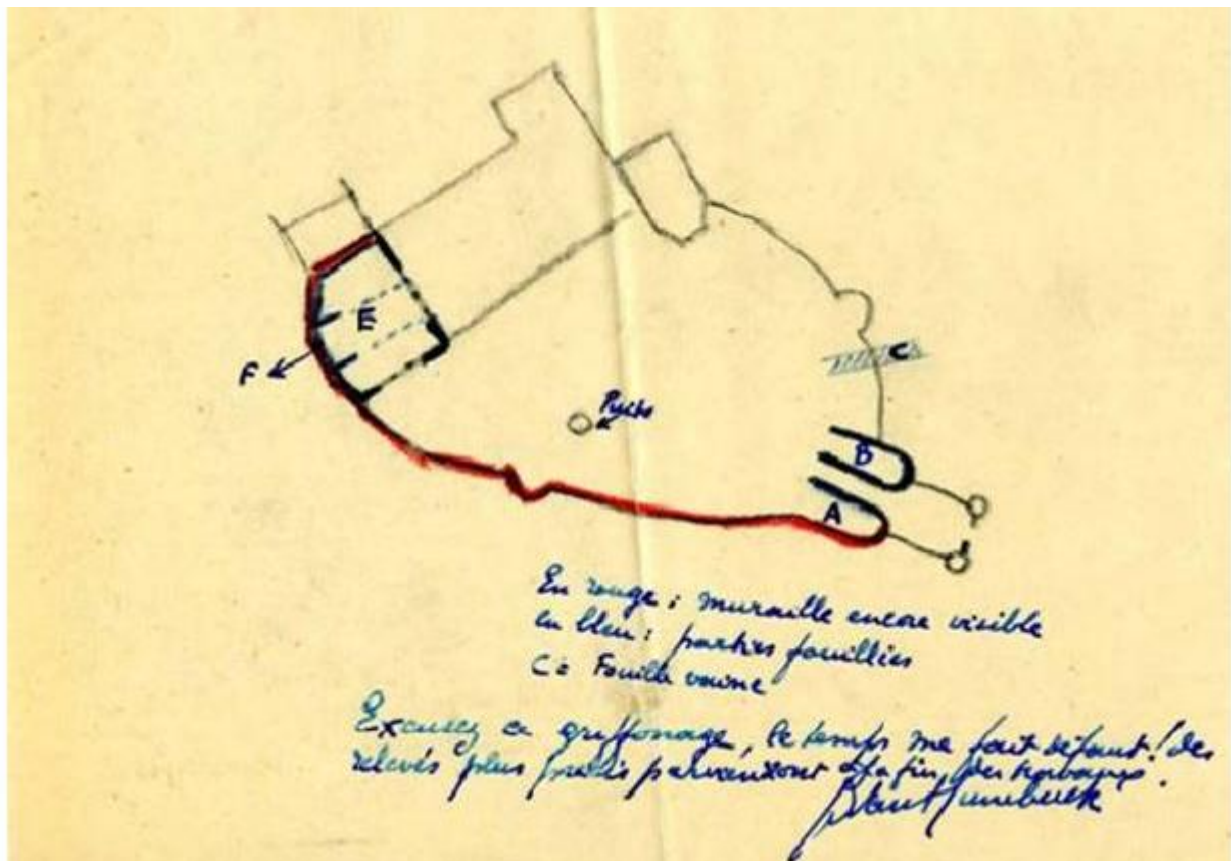 E
F
Puits
C
B
A
En rouge : muraille encore visible
en bleu : parties fouillées
C = Fouille vaine
Excusez ce griffonage, le temps me fait défaut ! des
relevés plus précis parviendront à la fin des travaux.